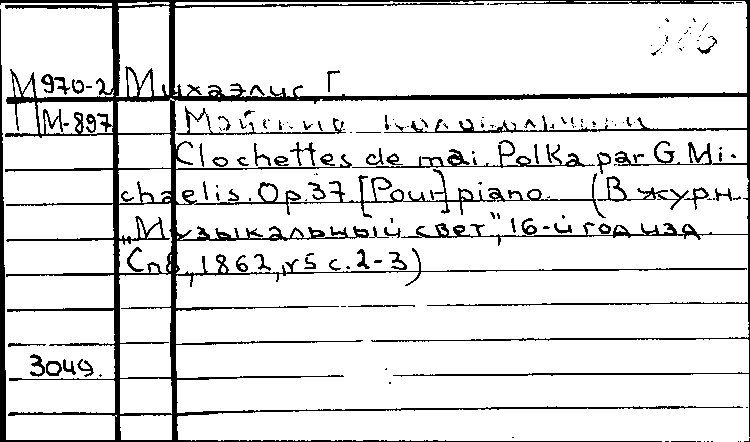 316
М 970-2 Михаэлис, Г.
М-897 Майские колокольчики
Clochettes de mai. Polka par G. Mi-
chaelis. Op. 37. [Pour] piano. (В журн.
„Музыкальный свет", 16-й год изд.
Спб., 1862, №5 с. 2-3)
3049.